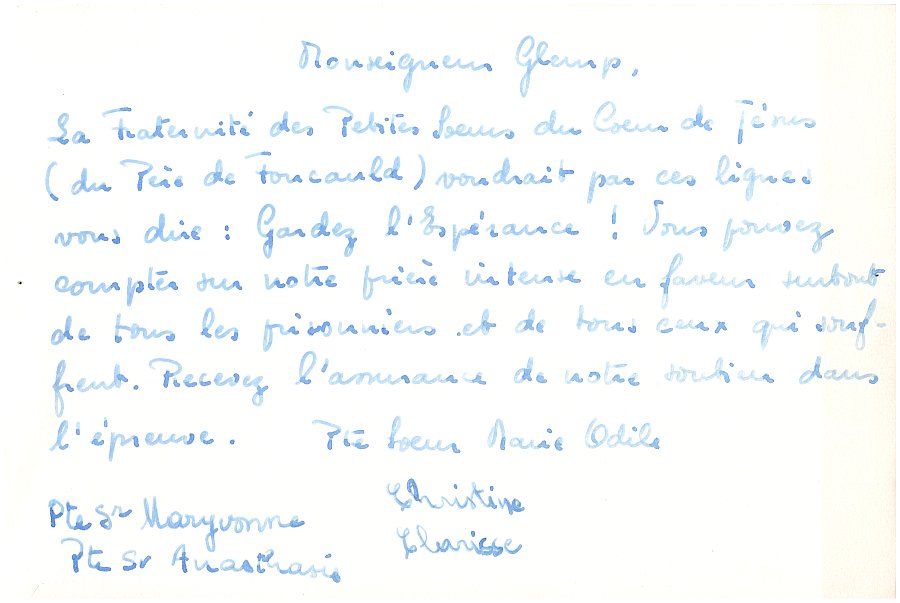 Monseigneur Glemp,
La Fraternité des Petites Soeurs du Coeur de Jésus
(du Père de Foucauld) voudrait par ces lignes
vous dire : Gardez l'Espérance ! Vous pouvez
compter sur notre prière intense en faveur surtout
de tous les prisonniers et de tous ceux qui souf-
frent. Recevez l'assurance de notre soutien dans
l'épreuve. Pte Soeur Marie Odile
Pte Sr Maryvonne Christine
Pte Sr Anasthasie Clarisse